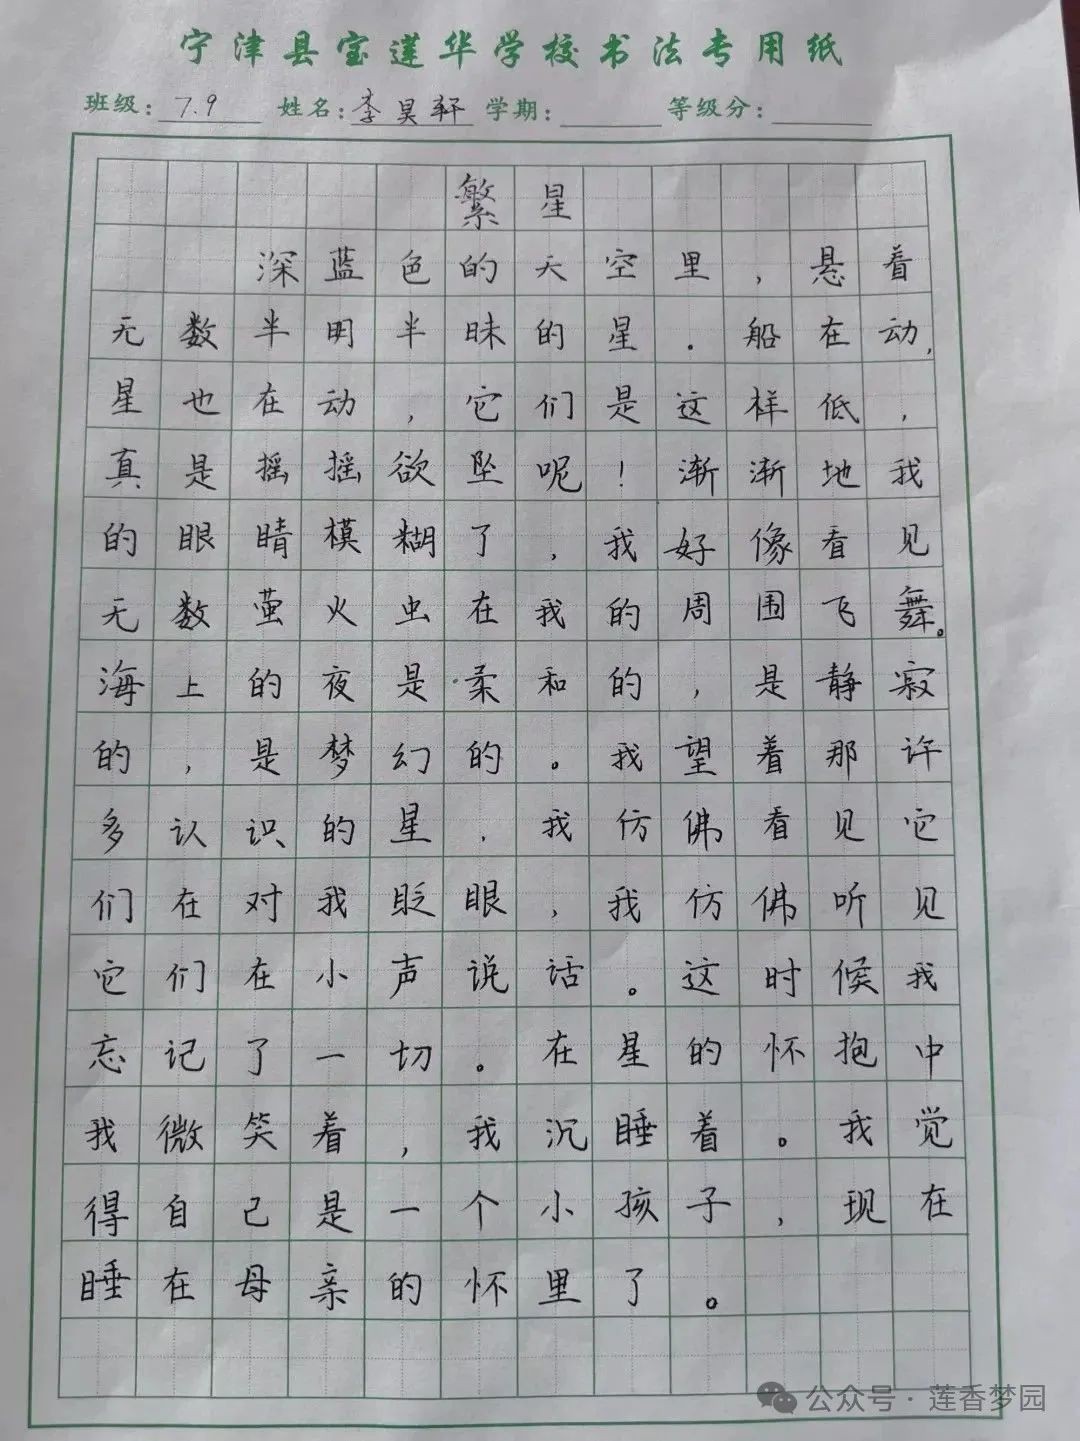 宁津县宝莲华学校书法专用纸
班级：7.9 姓名：李昊轩 学期： 等级分：
繁星
深蓝色的天空里，悬着
无数半明半昧的星．船在动，
星也在动，它们是这样低，
真是摇摇欲坠呢！渐渐地我
的眼睛模糊了，我好像看见
无数萤火虫在我的周围飞舞。
海上的夜是柔和的，是静寂
的，是梦幻的。我望着那许
多认识的星，我仿佛看见它
们在对我眨眼，我仿佛听见
它们在小声说话。这时候我
忘记了一切。在星的怀抱中
我微笑着，我沉睡着。我觉
得自己是一个小孩子，现在
睡在母亲的怀里了。
公众号·莲香梦园